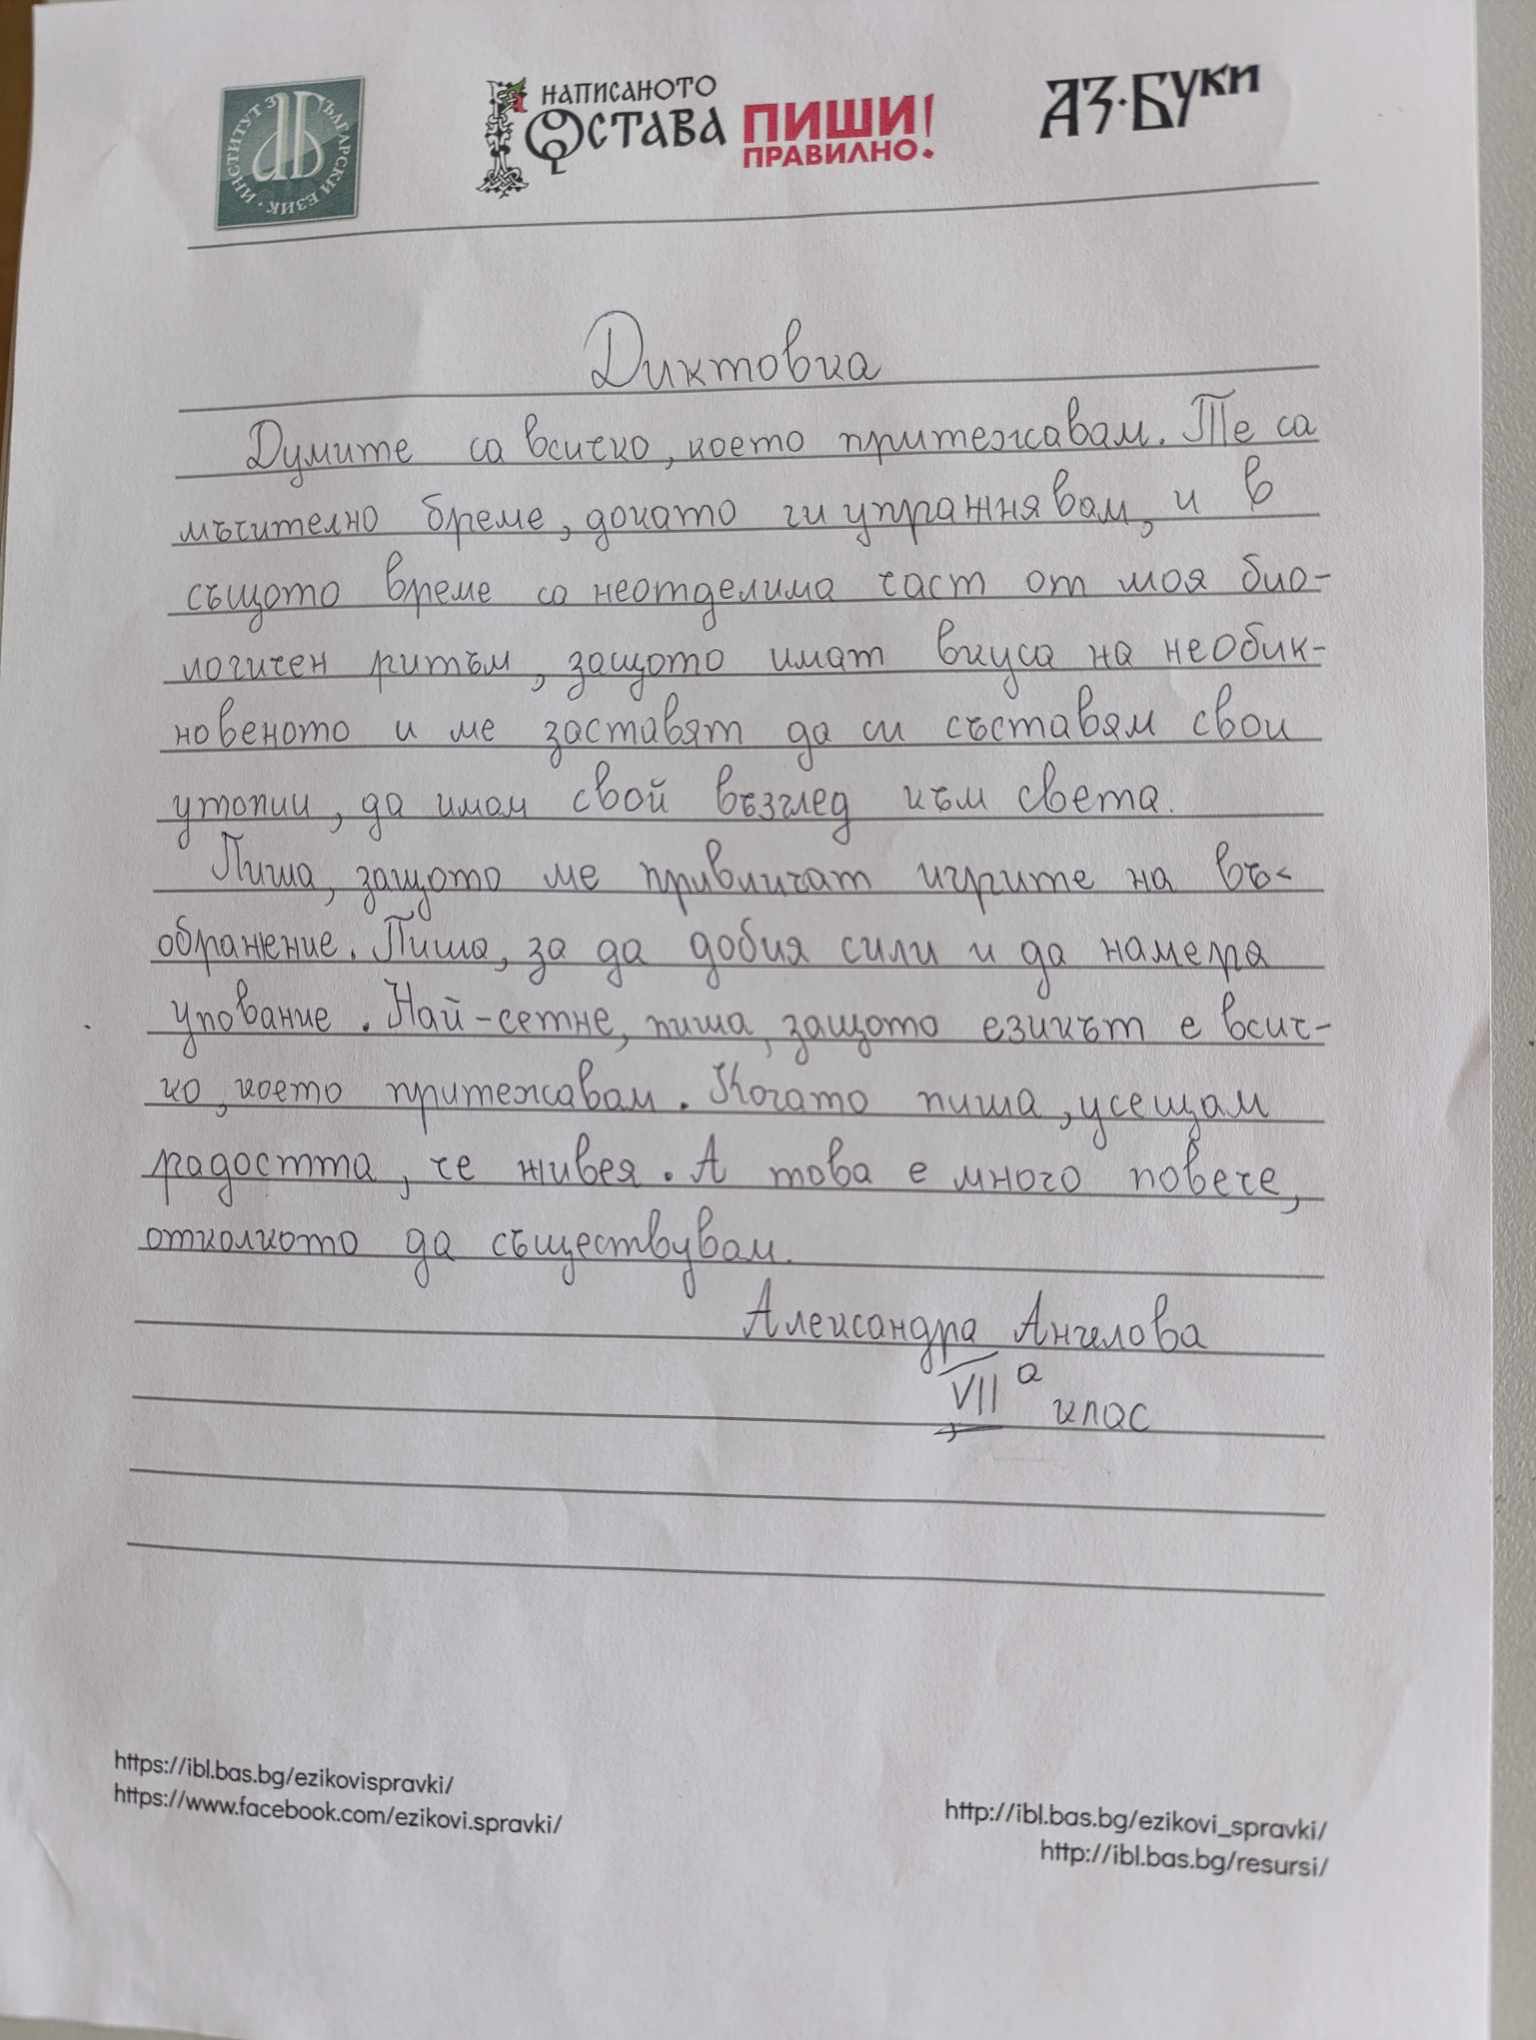 ИНСТИТУТ ЗА БЪЛГАРСКИ ЕЗИК
НАПИСАНОТО
ОСТАВА
ПИШИ!
ПРАВИЛНО.
АЗ·БУКИ
Диктовка
Думите са всичко, което притежавам. Те са
мъчително бреме, докато ги упражнявам, и в
същото време са неотделима част от моя био-
логичен ритъм, защото имат вкуса на необик-
новеното и ме заставят да си съставям свои
утопии, да имам свой възглед към света.
Пиша, защото ме привличат игрите на въ-
ображение. Пиша, за да добия сили и да намеря
упование. Най-сетне, пиша, защото езикът е всич-
ко, което притежавам. Когато пиша, усещам
радостта, че живея. А това е много повече,
отколкото да съществувам.
Александра Ангелова
VII а клас
https://ibl.bas.bg/ezikovispravki/
https://www.facebook.com/ezikovi.spravki/
http://ibl.bas.bg/ezikovi_spravki/
http://ibl.bas.bg/resursi/